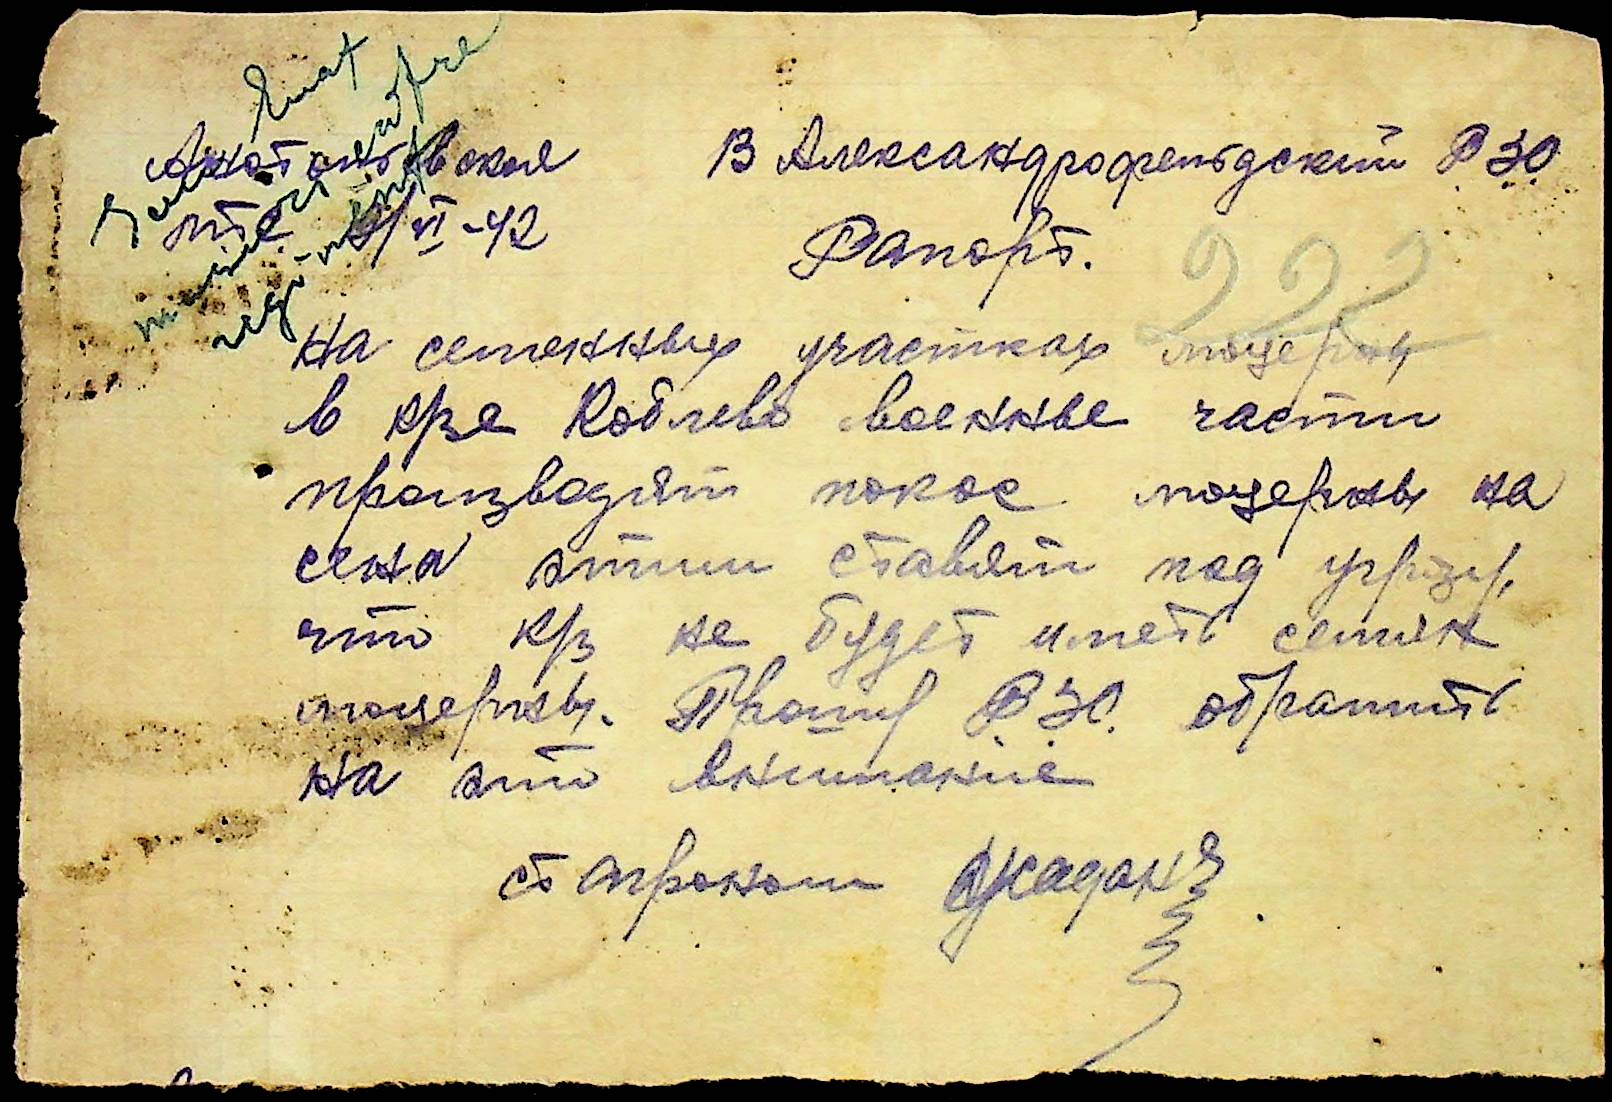 Анатольевская В Александрофельдский РЗО
мтс /VI-42 Рапорт.
222
на семенных участках люцерны
в крз Коблево военные части
производят покос люцерны на
сена этим ставят под угрозу,
что крз не будет иметь семян
люцерны. Прошу РЗО. обратить
на это внимание
ст агроном Жадан